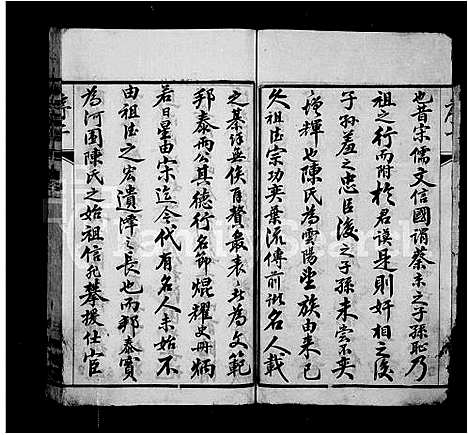 也昔宋儒文信國謂蔡京之子孫恥乃
祖之行而附於君謨是則奸相之後
子孫羞之忠臣後之子孫未嘗不奕
增輝也陳氏為雲陽望族由來已
久祖德宗功奕葉流傳前以名人載
之纂詳無俟贅最表止為文範
邦泰兩公其德行名節焜耀史冊炳
若日星由宋迄今代有名人未始不
由祖德之宏遺澤之長也而邦泰實
為河圍陳氏之始祖信非攀援仕宦
序二
FamilySearch